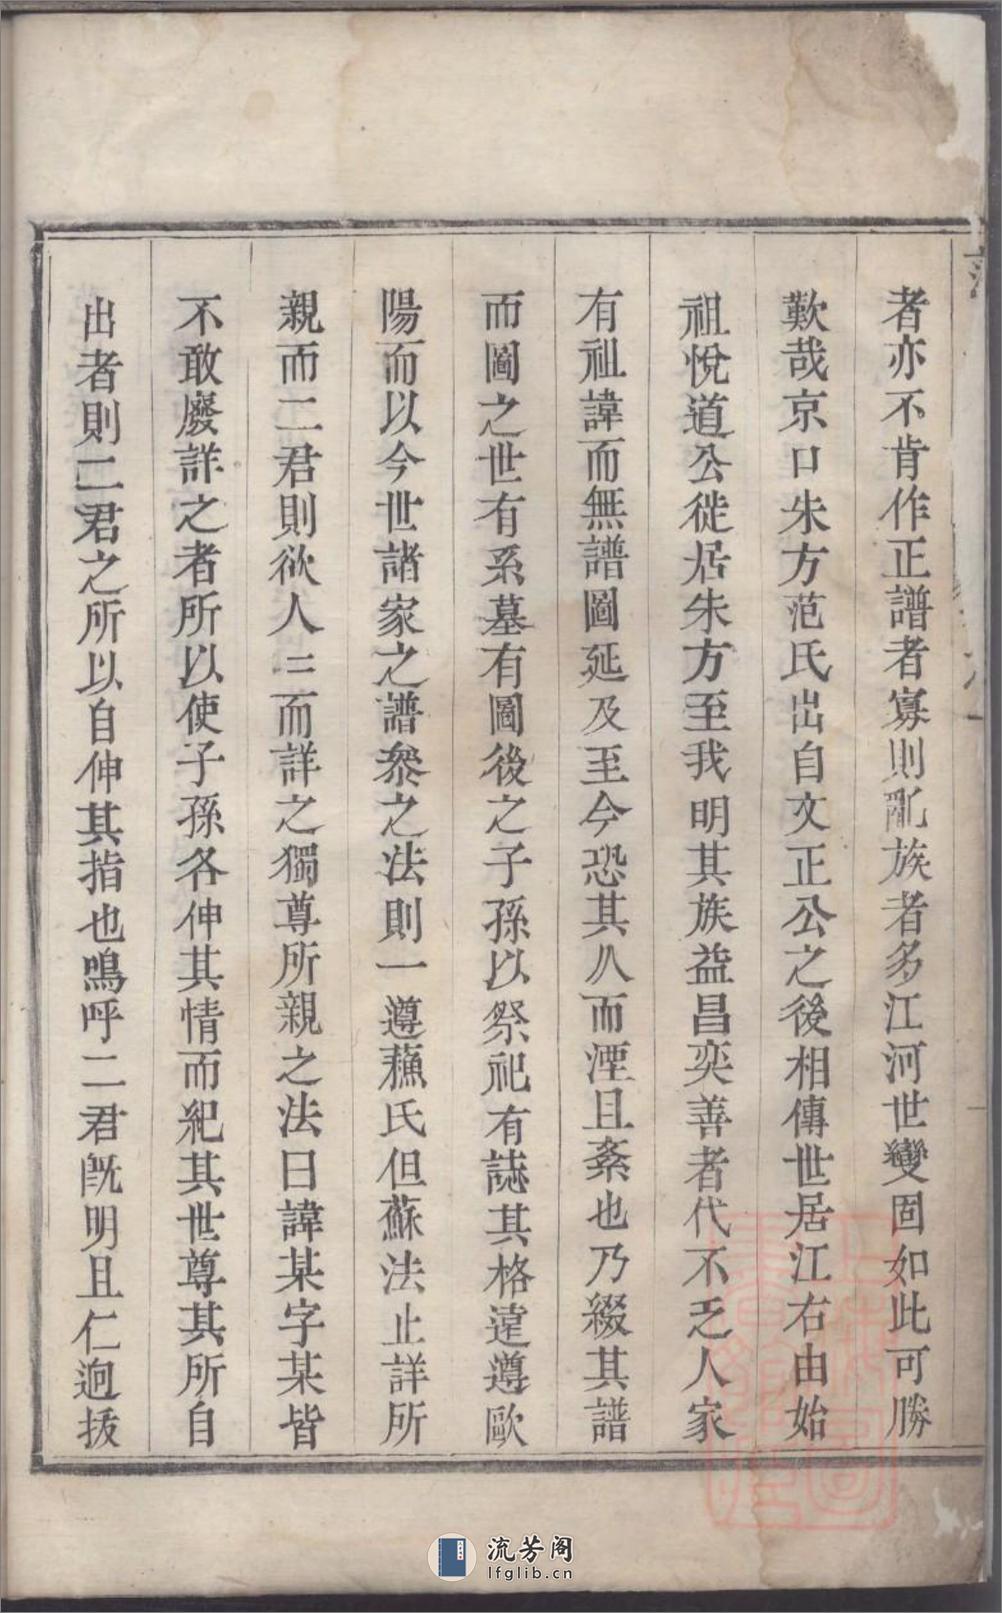 者亦不肯作正譜者寡則亂族者多江河世變固如此可勝
歎哉京口朱方范氏出自文正公之後相傳世居江右由始
祖悅道公徙居朱方至我明其族益昌奕善者代不乏人家
有祖諱而無譜圖延及至今恐其久而湮且紊也乃綴其譜
而圖之世有系墓有圖後之子孫以祭祀有誌其格遠遵歐
陽而以今世諸家之譜叅之法則一遵蘓氏但蘇法止詳所
親而二君則欲人二而詳之獨尊所親之法曰諱某字某皆
不敢廢詳之者所以使子孫各伸其情而紀其世尊其所自
出者則二君之所以自伸其指也嗚呼二君旣明且仁迥拔
流芳阁
lfglib.cn